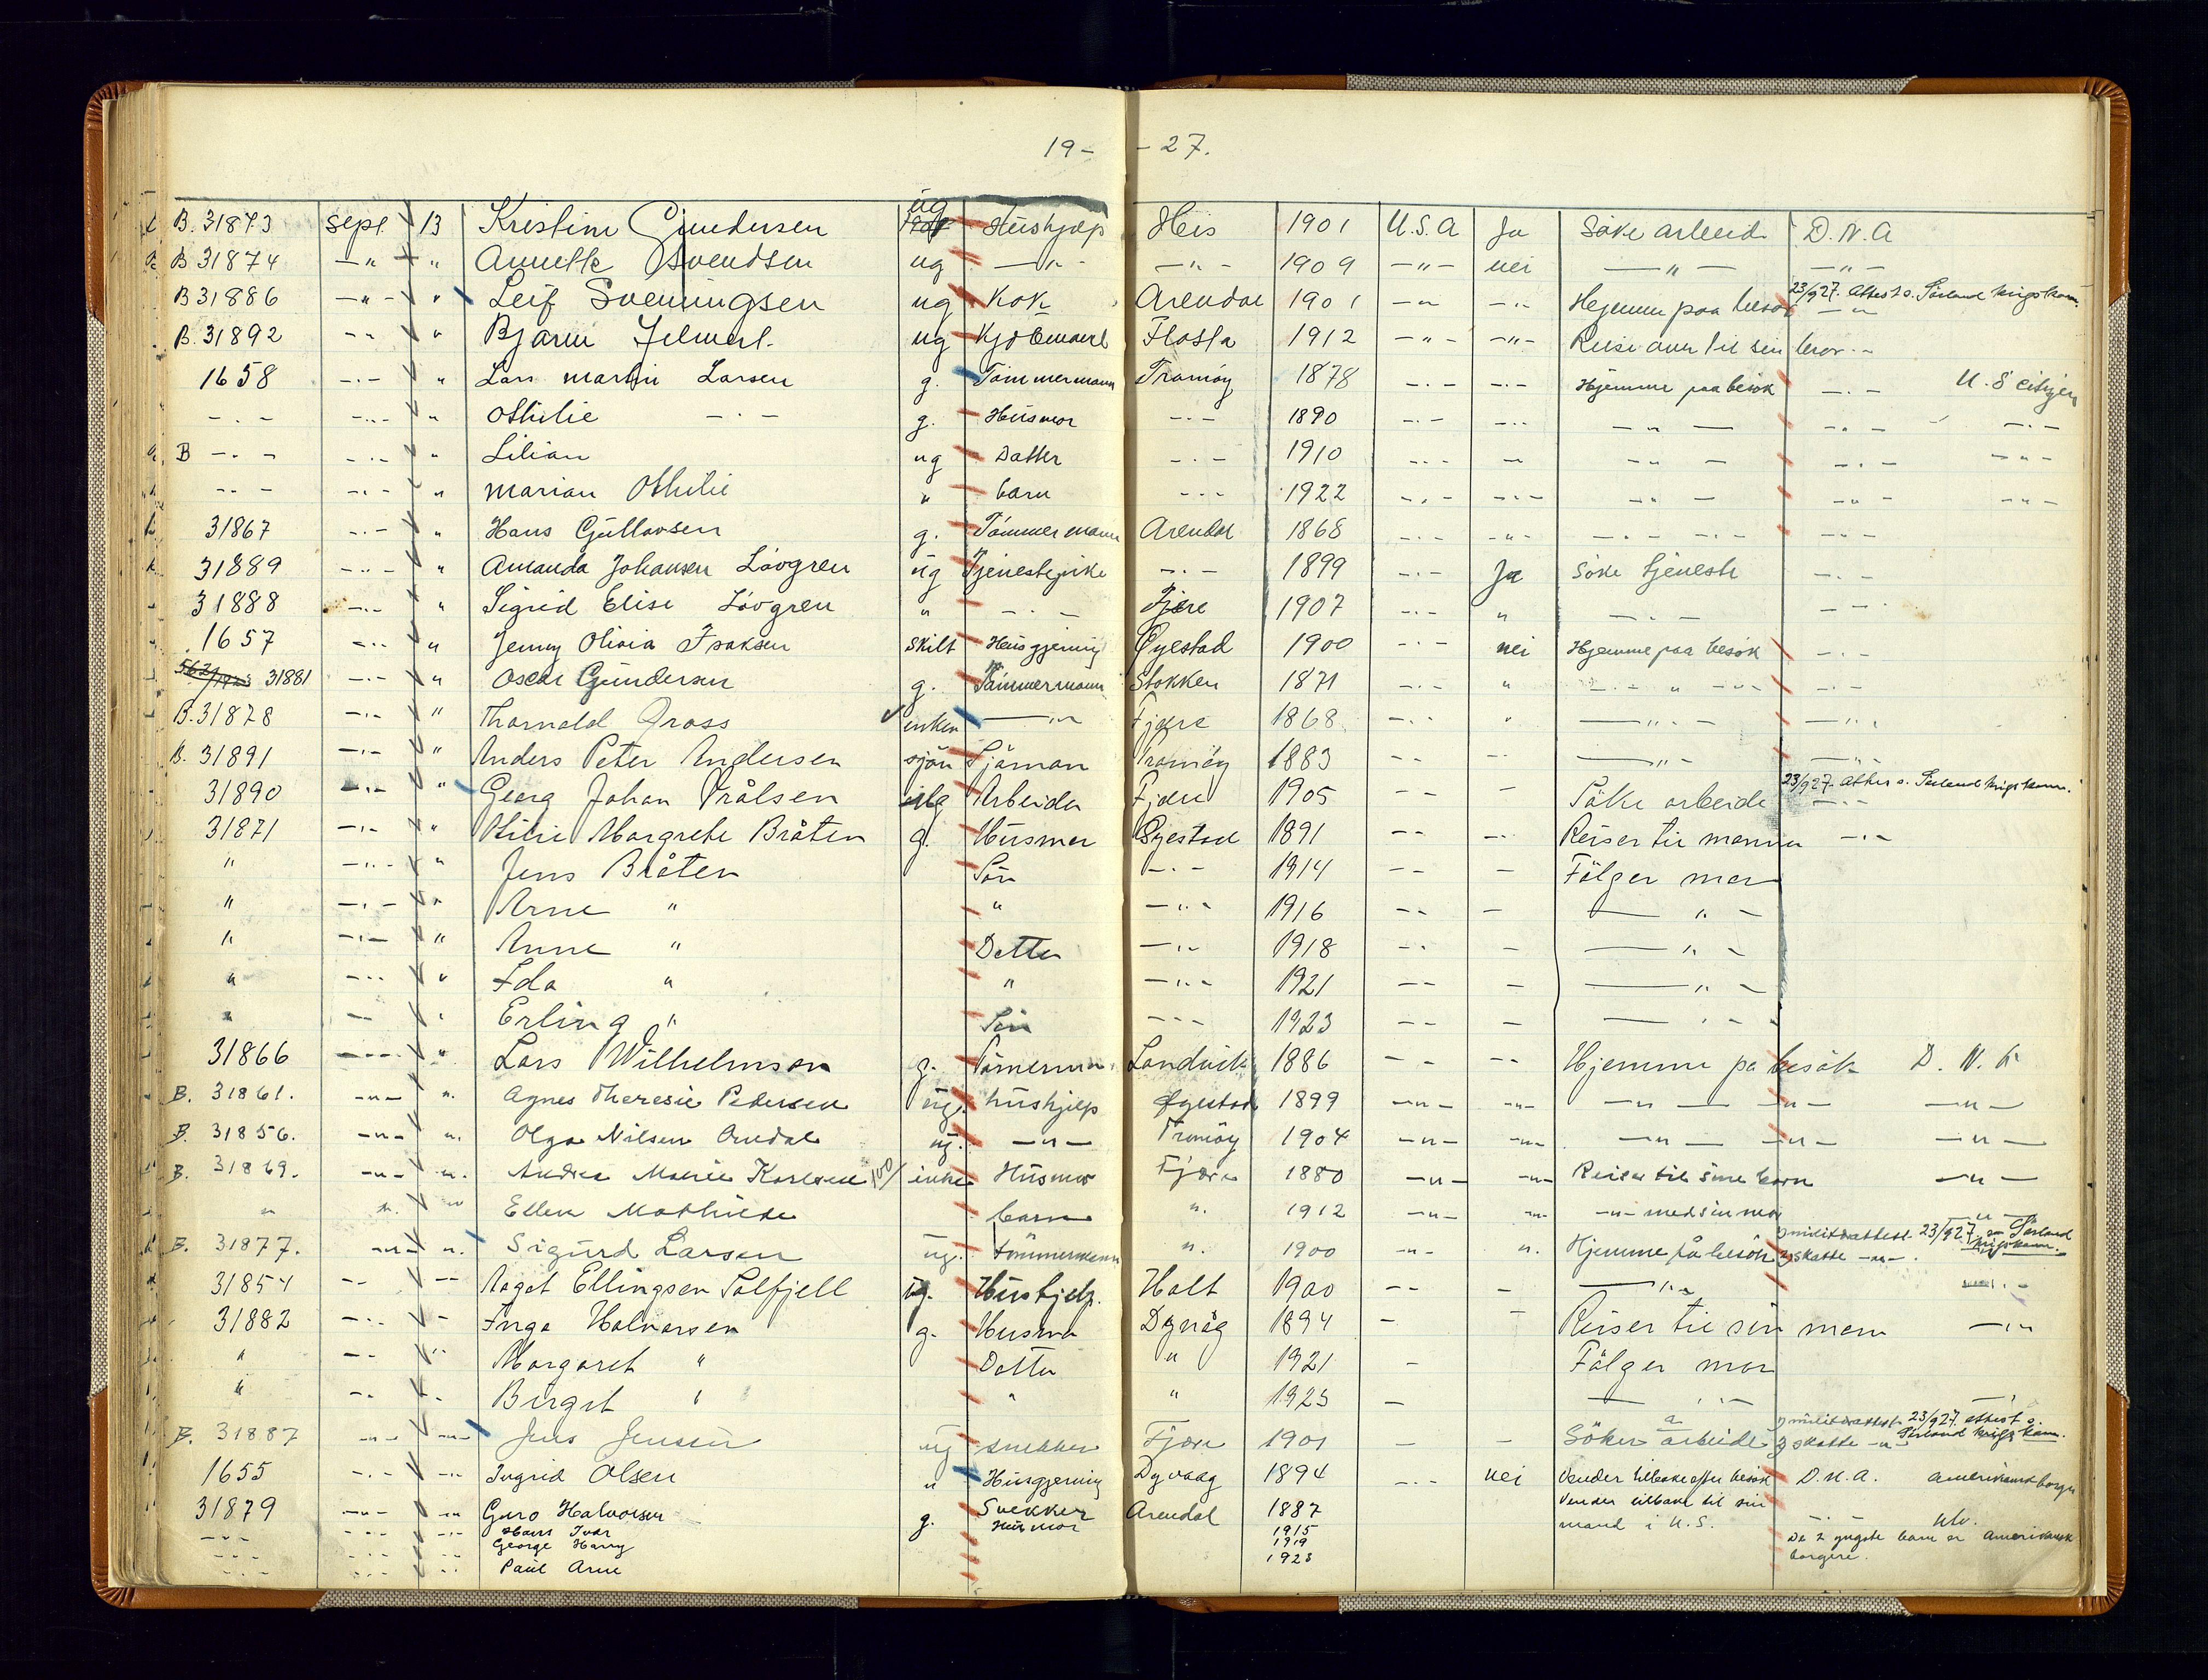 19- - 27.
B. 31873 Sept 13 Kristine Gundersen ug Hushjælp Heis 1901 U.S.A Ja Søke arbeid D.N.A
B 31874 -"- " Annette Svendsen ug -"- -"- 1909 -"- nei -"- -"-
B 31886 -"- " Leif Sveningsen ug Kok Arendal 1901 -"- -"- Hjemme paa besøk 23/9 27. Attest o. Sörland krigskom. -"-
B. 31892 -"- " Bjarne ug Flosta 1912 -"- -"- Reise over til sin bror -"-
1658 -"- " Lars Martin Larsen g. Tömmermann Tromöy 1878 -"- -"- Hjemme paa besök -"- U.S citizen
-"- -"- " Othilie -"- g. Husmor -"- 1890 -"- -"- -"- -"- -"-
B -"- -"- " Lilian ug Datter -"- 1910 -"- -"- -"- -"- -"-
-"- -"- " Marian Othilie " barn -"- 1922 -"- -"- -"- -"- -"-
31867 -"- " Hans Gullavsen g. Tömmermann Arendal 1868 -"- -"- -"- -"- -"-
31889 -"- " Amanda Johansen Lövgren ug Tjenestepike -"- 1899 -"- Ja Söke tjeneste -"-
31888 -"- " Sigrid Elise Lövgren " -"- Fjære 1907 -"- " -"- -"-
1657 -"- " Jenny Olivia Isaksen skilt Husgjerning Øyestad 1900 -"- nei Hjemme paa besøk -"-
31881 -"- " Oscar Gundersen g. Tömmermann Stokken 1871 -"- " -"- " -"- -"-
B. 31878 -"- " Thorvald Gross enken -"- Fjære 1868 -"- " -"- -"-
B. 31891 -"- " Anders Peter Andersen Sjöman Tromöy 1883 -- -- -"- -"-
31890 -"- " Georg Johan Arbeider Fjære 1905 -- - Söke arbeide 23/9 27. Attest o. Sörland krigskom. -"-
31871 -"- " Margrethe Bråten g. Husmor Øyestad 1891 -- -"- Reiser til mannen -"-
" -"- " Jens Bråten Sön -"- 1914 -- - Fölger mor
" -"- " Arne " " -"- 1916 -- - -"-
" -"- " Anne " Datter -"- 1918 -- - -"-
" -"- " Ida " " -"- 1921 -- - -"-
" -- " Erling " Sön -"- 1923 -- - -"-
31866 -"- " Lars Wilhelmsen g. Tömerman Landvik 1886 -- -- Hjemme på besök D. N. A
B. 31861. -"- ". Agnes Theresie Pedersen ug. hushjelp Øyestad 1899 -"- -"- -"- -"- -"-
B. 31856. -"- ". Olga Nilsen Omdal ug. -"- Tromöy 1904 -"- -"- -"- -"- -"-
B. 31869. -"- ". Andrea Marie Karlsen enke Husmor Fjære 1880 -"- -"- Reiser til sine barn -"-
" ". " Ellen Mathilde barn ". 1912 -"- -"- -"- med sin mor -"-
B. 31877. -"- ". Sigurd Larsen ug. tömmermann ". 1900 -"- ". Hjemme på besök 1) militærattest 23/9 27 Sörland krigskom. 2) skatte -"-
31854 -- -- Aagot Ellingsen Solfjell ug. Hushjelp. Holt 1900 -- - -"- -"-
31882 -"- - Inga Halvorsen g. Husmor Dyvåg 1894 - - Reiser til sin mann -"-
" -- " Margaret " Datter " 1921 - Fölger mor
" -- " Birgit " " " 1923 - -"-
B. 31887 -"- -"- Jens Jensen ug snekker Fjære 1901 - - Söker arbeide 1) militærattest 23/9 27. attest o. Sörland krigskom. 2) skatte -"-
1655 -"- -"- Ingrid Olsen " Husgjerning Dyvaag 1894 -"- nei Vender tilbake efter besök D.N.A. Amerikansk borger
31879 -"- -"- Guro Halvorsen g. Husmor Arendal 1887 Vender tilbake til sin mand i U.S. -"- utv.
-"- -"- -"- Hans Ivar 1915 De 2 yngste barn er Amerikansk borgere.
-"- -"- -"- George Harry 1919
-"- -"- -"- Paul Arne 1923